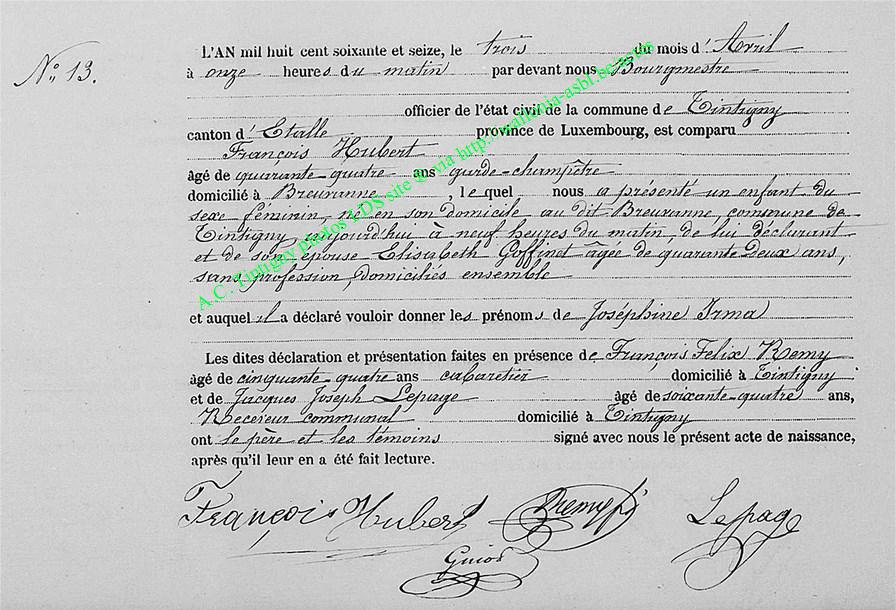 N° 13.
L'AN mil huit cent soixante et seize, le trois du mois d'Avril
à onze heures du matin par devant nous Bourgmestre
officier de l'état civil de la commune de Tintigny
canton d'Etalle province de Luxembourg, est comparu
François Hubert
âgé de quarante-quatre ans garde-champêtre
domicilié à Breuvanne, lequel nous a présenté un enfant du
sexe féminin, né en son domicile au dit Breuvanne, commune de
Tintigny aujourd'hui à neuf heures du matin, de lui déclarant
et de son épouse Elisabeth Goffinet âgée de quarante deux ans,
sans profession, domiciliés ensemble
et auquel il a déclaré vouloir donner les prénoms de Joséphine Irma
Les dites déclaration et présentation faites en présence de François Felix Remy
âgé de cinquante-quatre ans cabaretier domicilié à Tintigny
et de Jacques Joseph Lepage âgé de soixante-quatre ans,
Receveur communal domicilié à Tintigny
ont le père et les témoins signé avec nous le présent acte de naissance,
après qu'il leur en a été fait lecture.
François Hubert Lepage
A.C. Tintigny photos LDS site @ via